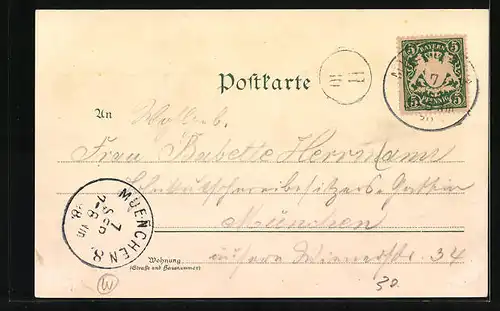 BAYERN
5 5
5 PFENNIG 5
7
Postkarte
II
An Wohlgeb.
Frau Babette Herrmann
Lohnkutschereibesitzers-Gattin
München
äussere Wienerstr. 34
Wohnung
(Straße und Hausnummer)
MUENCHEN 8.
7
SEP
98.
30.
W